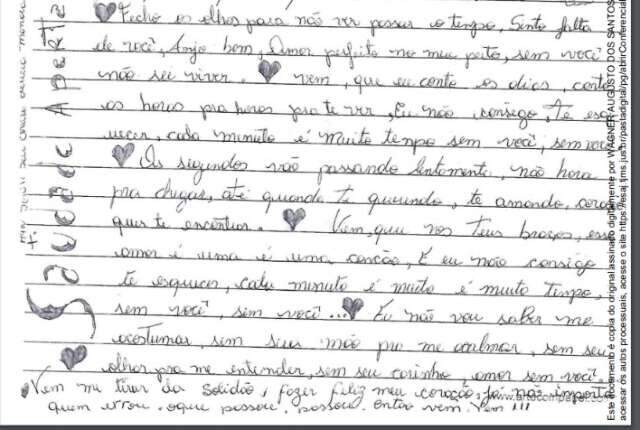 Fecho os olhos para não ver passar o tempo, Sinto falta
de você, Anjo bom, Amor perfeito no meu peito, sem você
não sei viver. vem, que eu conto os dias, conto
as horas pra horas pra te ver, Eu não consigo, te esq
uecer, cada minuto é muito tempo sem você, sem você.
Os segundos vão passando lentamente, não hora
pra chegar, até quando te querendo, te amando, coraç
quer te encontrar. Vem, que nos teus braços, esse
amor é uma é uma, canção, E eu não consigo
te esquecer, cada minuto é muito é muito tempo,
sem você, sem você... Eu não vou saber me
acostumar, sem suas mão pra me acalmar, sem seu
olhar pra me entender, sem seu carinho, amor sem você.
Vem me tirar da solidão, fazer feliz meu coração, já não importa
quem errou. oque passou, passou, então vem. Vem !!!
Este documento é copia do original assinado digitalmente por WAGNER AUGUSTO DOS SANTOS
acessar os autos processuais, acesse o site https://esaj.tjms.jus.br/pastadigital/pg/abrirConferencia